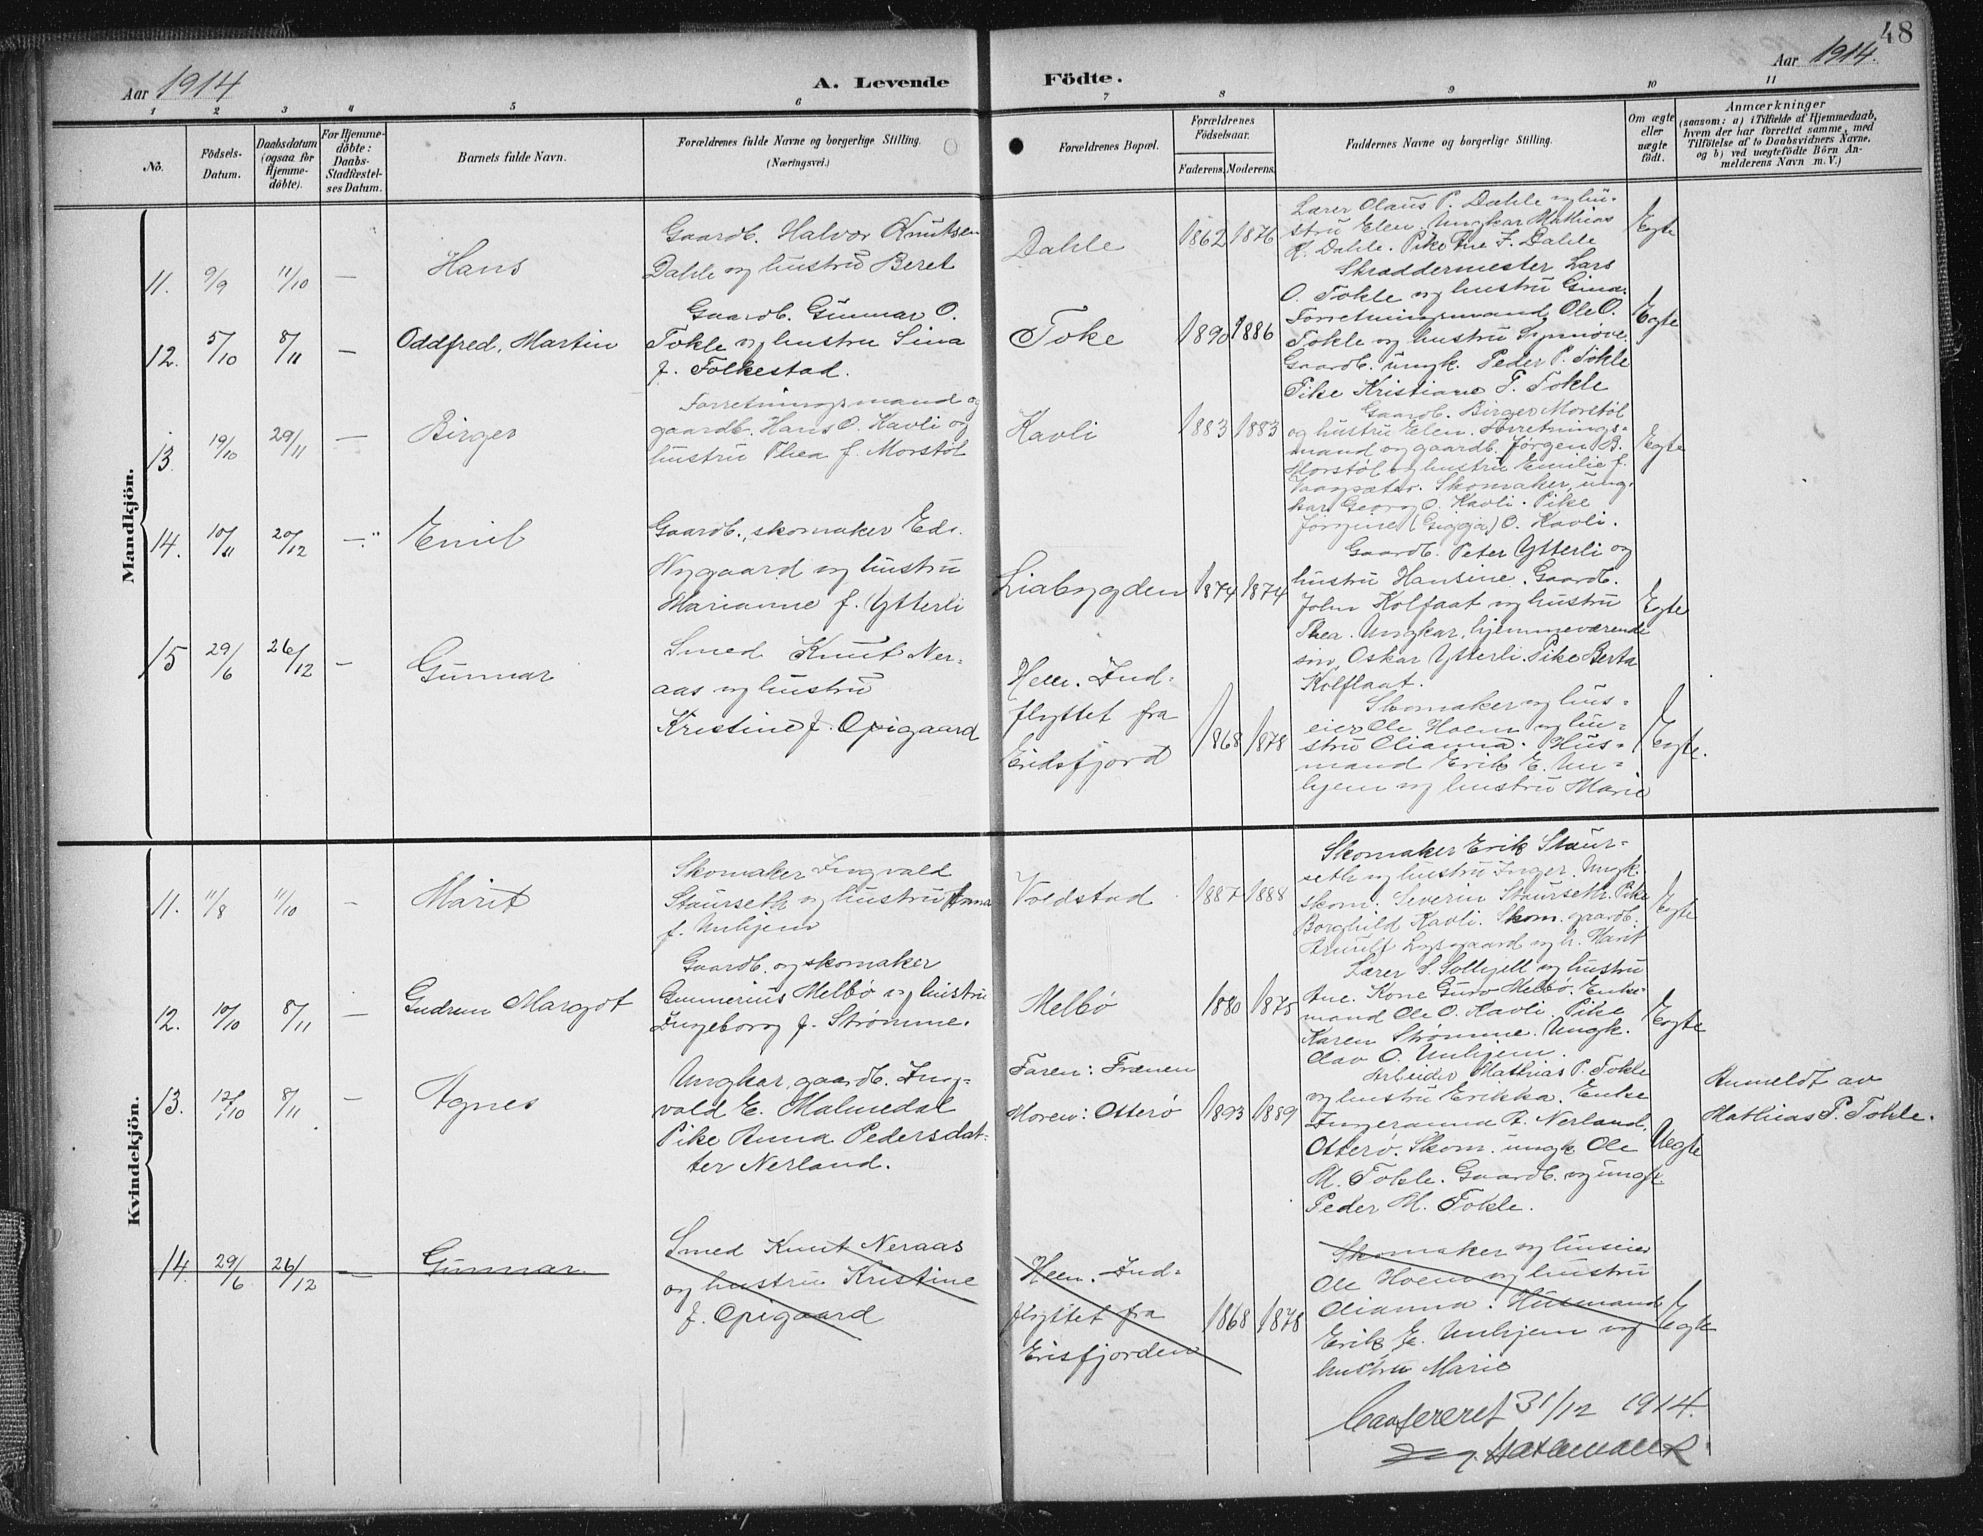 48
Aar 1914
A. Levende
Födte.
Aar 1914.
1 2 3 4 5 6 7 8 9 10 11
No.
Födsels-
Datum.
Daabsdatum
(ogsaa for
Hjemme-
döbte).
For Hjemme-
döbte:
Daabs-
Stadfæstel-
ses Datum.
Barnets fulde Navn.
Forældrenes fulde Navne og borgerlige Stilling.
(Næringsvei.)
Forældrenes Bopæl.
Forældrenes
Födselsaar.
Faderens. Moderens.
Faddernes Navne og borgerlige Stilling.
Om ægte
eller
uægte
födt.
Anmærkninger
(saasom: a) i Tilfælde af Hjemmedaab,
hvem der har forrettet samme, med
Tilföielse af to Daabsvidners Navne,
og b) ved uægtefödte Börn An-
melderens Navn m. V.)
Mandkjön.
11. 9/9 11/10 —
Hans
Gaardb. Halvor Knutsen
Dahle og hustru Beret
Dahle
1862 1876
Lærer Olaus P. Dahle og hu-
stru Elen. Ungkar Mathias
H. Dahle. Pike Ane F. Dahle
Ægte
12. 5/10 8/11 —
Oddfred, Martin
Gaardb. Gunnar O.
Tokle og hustru Sina
f. Folkestad.
Toke
1890 1886
Skræddermester Lars
O. Tokle og hustru Gina.
Forretningsmand Ole O.
Tokle og hustru Synnøve.
Gaardb. ungk. Peder P. Tokle
Pike Kristiane P. Tokle
Ægte
13. 19/10 29/11 —
Birger
Forretningsmand og
gaardb. Hans O. Kavli og
hustru Thea f. Morstøl
Kavli
1883 1883
Gaardb. Birger Morstøl
og hustru Elen. Forretnings-
mand og gaardb. Jørgen B.
Morstøl og hustru Emilie f.
Vaagsæter. Skomaker, ung-
kar Georg O. Kavli. Pike
Jørgine O. Kavli.
Ægte
14. 10/11 20/12 —
Emil
Gaardb., skomaker Edv.
Nygaard og hustru
Marianne f. Ytterli
Liabygden
1874 1874
Gaardb. Peter Ytterli og
hustru Hansine. Gaardb.
John Kolflaat og hustru
Thea. Ungkar, hjemmeværende
søn, Oskar Ytterli. Pike Berta
Kolflaat.
Ægte
15 29/6 26/12 —
Gunnar
Smed Knut Ner-
aas og hustru
Kristine f. Opigaard
Heen. Ind-
flyttet fra
Eridsfjord
1868 1878
Skomaker og hus-
eier Ole Hoem og hu-
stru Olianna. Hus-
mand Erik E. Un-
hjem og hustru Marie
Ægte.
Kvindekjön.
11. 11/8 11/10 —
Marit
Skomaker Ingvald
Staurseth og hustru Anna
f. Unhjem
Voldstad
1887 1888
Skomaker Erik Staur-
seth og hustru Inger. Ungk.
skom. Severin Staurseth. Pike
Borghild Kavli. Skom. gaardb.
Arnulf Lysgaard og h. Marit
Ægte
12. 10/10 8/11 —
Gudrun Margot
Gaardb. og skomaker
Gunnerius Melbø og hustru
Ingeborg f. Strømme.
Melbø
1880 1875
Lærer S. Solhjell og hustru
Ane. Kone Guro Melbø. Enke-
mand Ole O. Kavli. Pike
Karen Strømme. Ungk.
Olav O. Unhjem.
Ægte
13. 12/10 8/11 —
Agnes
Ungkar, gaardb. Ing-
vald E. Malmedal
Pike Anna Pedersdat-
ter Nerland.
Faren: Frænen
Moren: Otterø
1893 1889
Arbeider Mathias P. Tokle
og hustru Erikka. Enke
Ingeranna A. Nerland,
Otterø. Skom. ungk Ole
M. Tokle. Gaardb. og ungk.
Peder M. Tokle.
Uegte
Anmeldt av
Mathias P. Tokle.
14. 29/6 26/12 —
Gunnar
Smed Knut Neraas
og hustru Kristine
f. Opigaard
Heen. Ind-
flyttet fra
Erisfjorden
1868 1878
Skomaker og huseier
Ole Hoem og hustru
Olianna. Husmand
Erik E. Unhjem og
hustru Marie
Ægte
Confereret 31/12 1914.